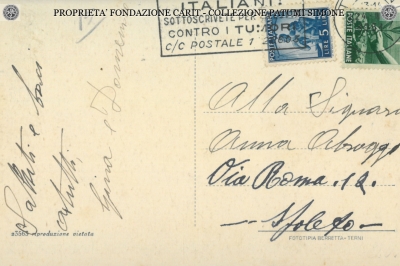 PROPRIETA' FONDAZIONE CARIT - COLLEZIONE PATUMI SIMONE
ITALIANI!
SOTTOSCRIVETE PER
CONTRO I TUMORI
C/C POSTALE 1
LIRE 5
Saluti e baci
a tutti
Gina e
Alla Signora
Anna
Via Roma. 12.
Spoleto
85562 riproduzione vietata
TERNI